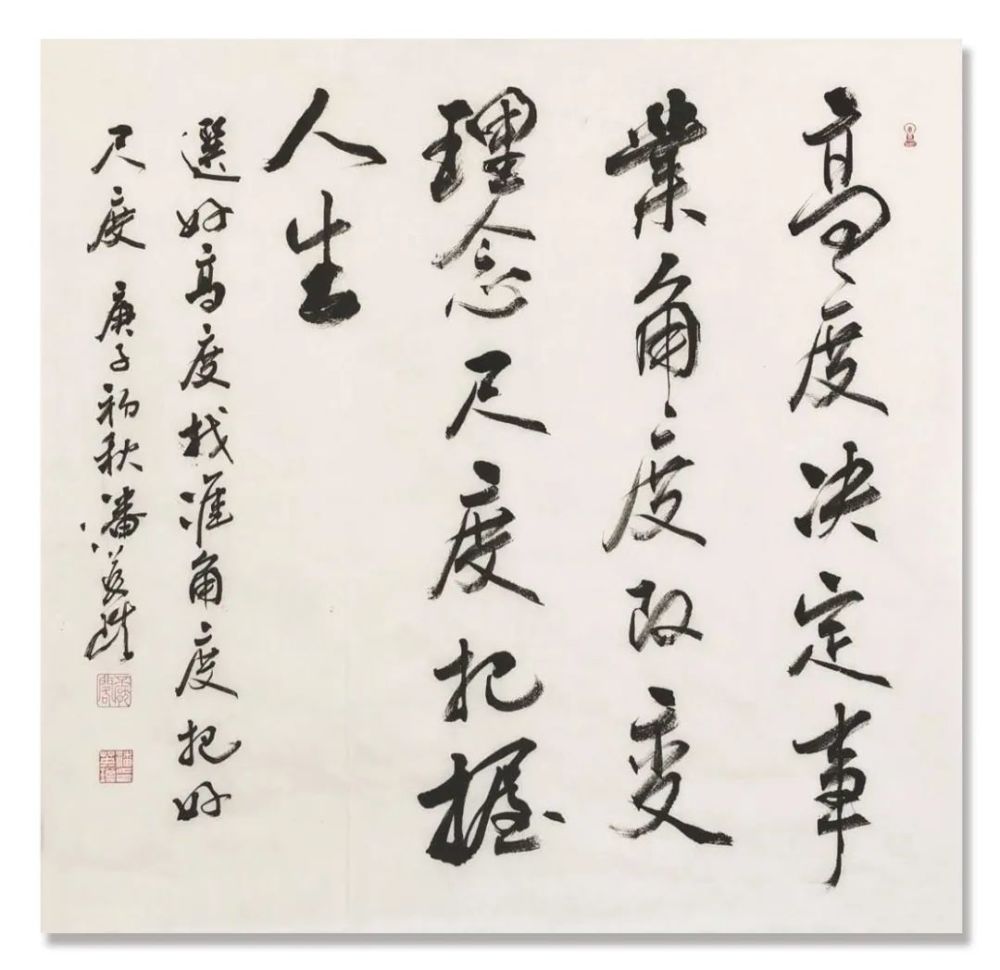 高度决定事
業角度改变
理念尺度把握
人生
選好高度找准角度把好
尺度 庚子初秋潘